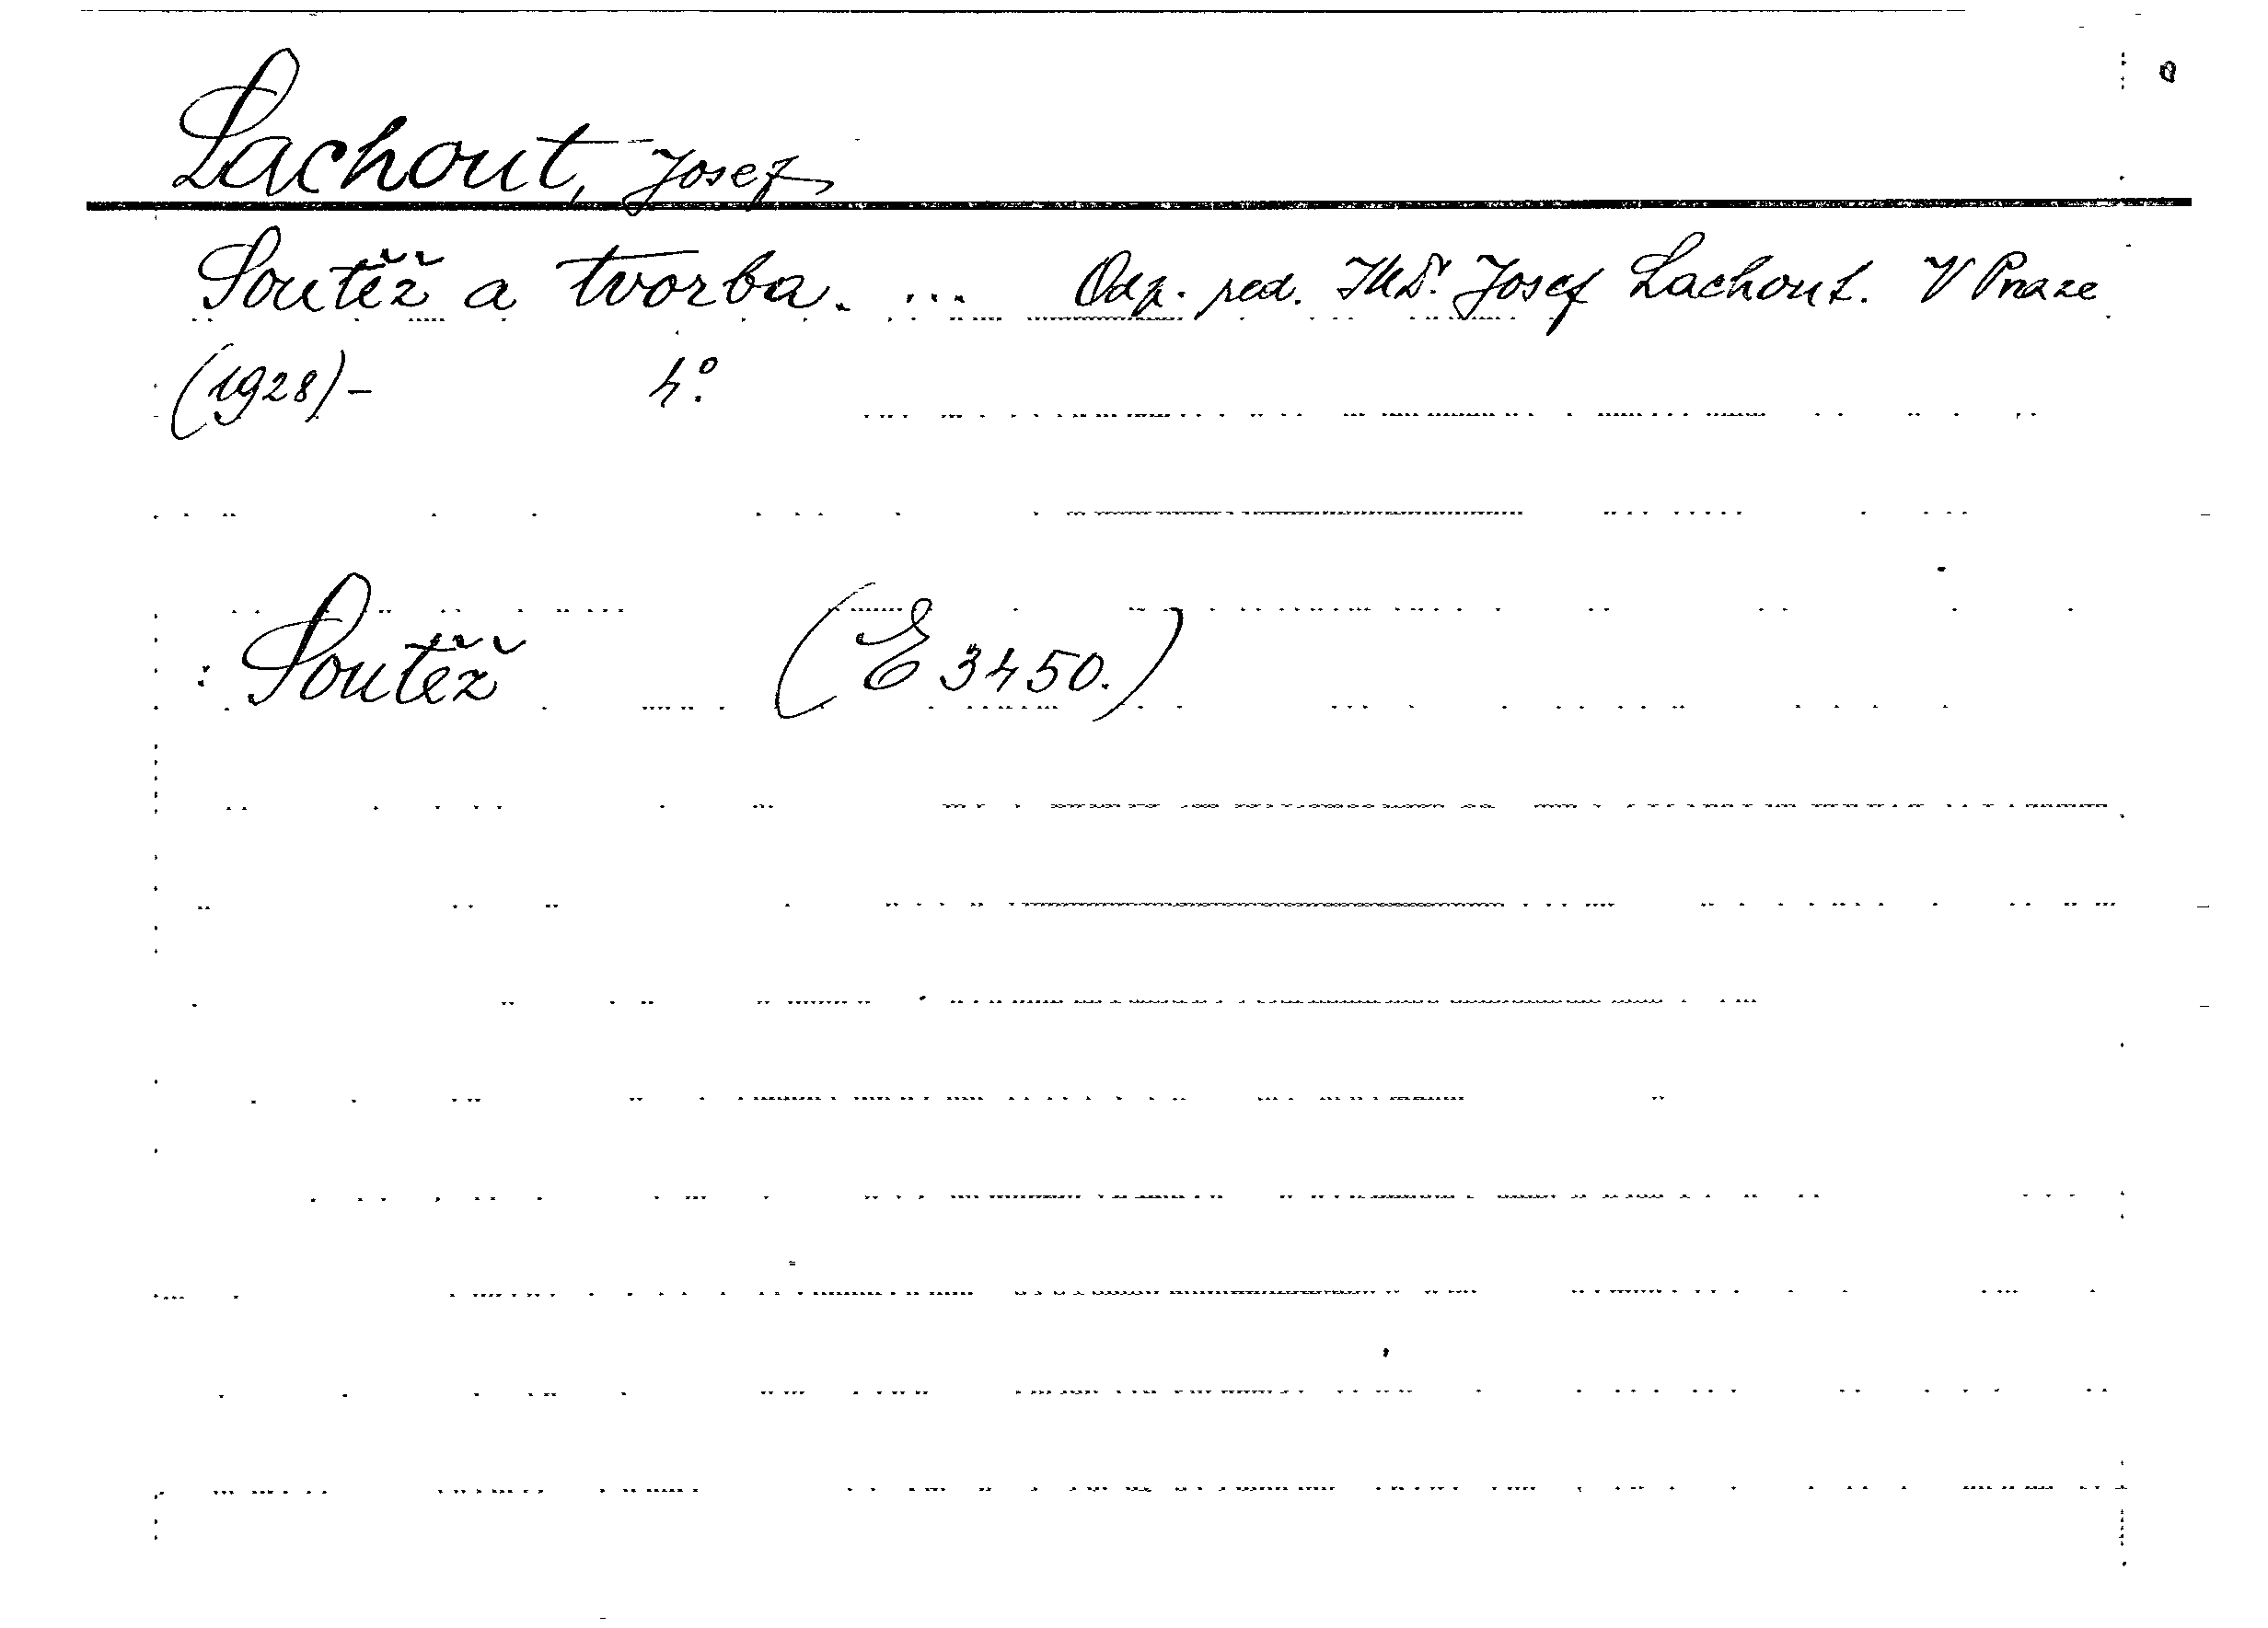 Lachout, Josef
Soutěž a tvorba. ... Odp. red. JUDr. Josef Lachout. V Praze
(1928)- 4°.
: Soutěž (E 3450.)